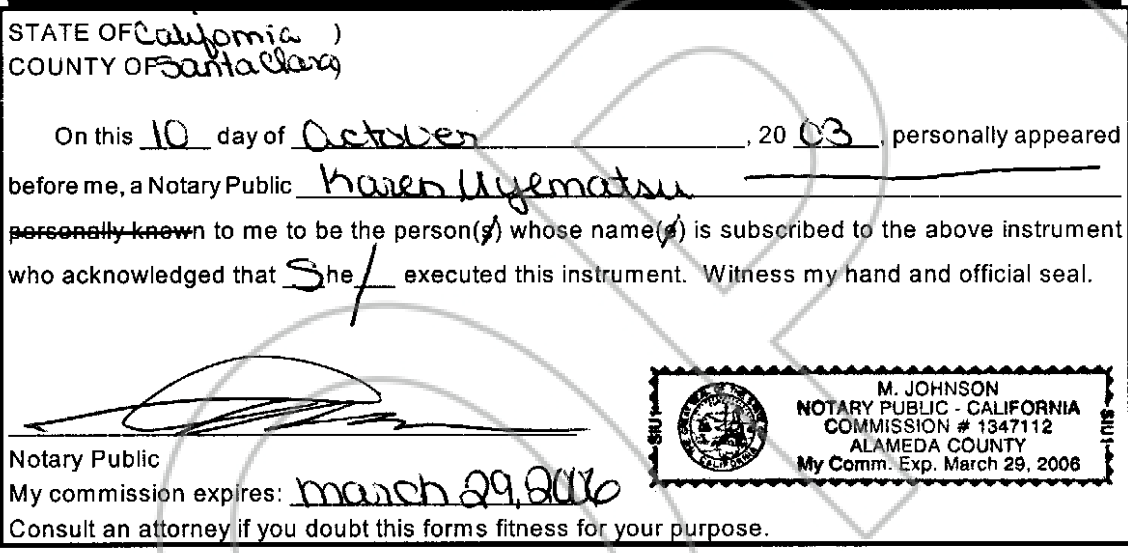 STATE OF California )
COUNTY OF Santa Clara)
On this 10 day of October, 20 03, personally appeared
before me, a Notary Public Karen Uyematsu
personally known to me to be the person(s) whose name(s) is subscribed to the above instrument
who acknowledged that She executed this instrument. Witness my hand and official seal.
M. JOHNSON
NOTARY PUBLIC - CALIFORNIA
COMMISSION # 1347112
ALAMEDA COUNTY
My Comm. Exp. March 29, 2006
SIU1
SIU1
Notary Public
My commission expires: march 29, 2006
Consult an attorney if you doubt this forms fitness for your purpose.